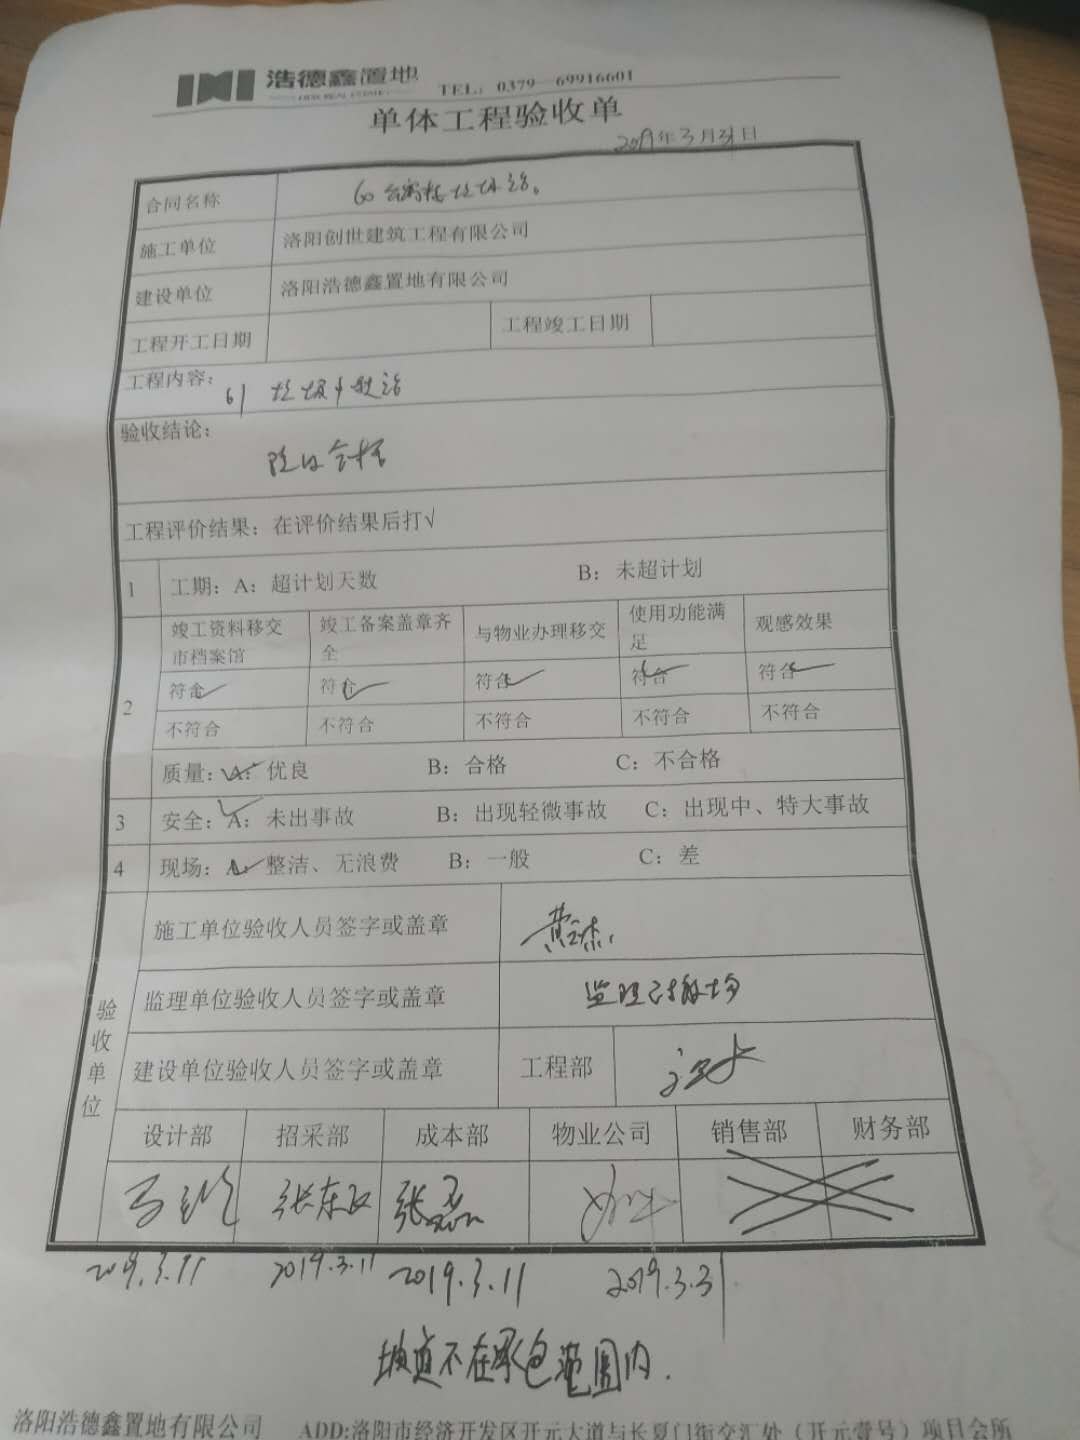 浩德鑫置地 TEL：0379—69916601
单体工程验收单
2019年3月31日
合同名称
施工单位 洛阳创世建筑工程有限公司
建设单位 洛阳浩德鑫置地有限公司
工程开工日期 工程竣工日期
工程内容：
验收结论：
工程评价结果：在评价结果后打√
1 工期：A：超计划天数 B：未超计划
2 竣工资料移交市档案馆 竣工备案盖章齐全 与物业办理移交 使用功能满足 观感效果
符合√ 符合√ 符合√ 符合√ 符合√
不符合 不符合 不符合 不符合 不符合
质量：A：优良 B：合格 C：不合格
3 安全：A：未出事故 B：出现轻微事故 C：出现中、特大事故
4 现场：A：整洁、无浪费 B：一般 C：差
验收单位
施工单位验收人员签字或盖章
监理单位验收人员签字或盖章
建设单位验收人员签字或盖章 工程部
设计部 招采部 成本部 物业公司 销售部 财务部
张磊
2019.3.11 2019.3.11 2019.3.11 2019.3.31
坡道不在承包范围内.
洛阳浩德鑫置地有限公司 ADD:洛阳市经济开发区开元大道与长夏门街交汇处（开元壹号）项目会所